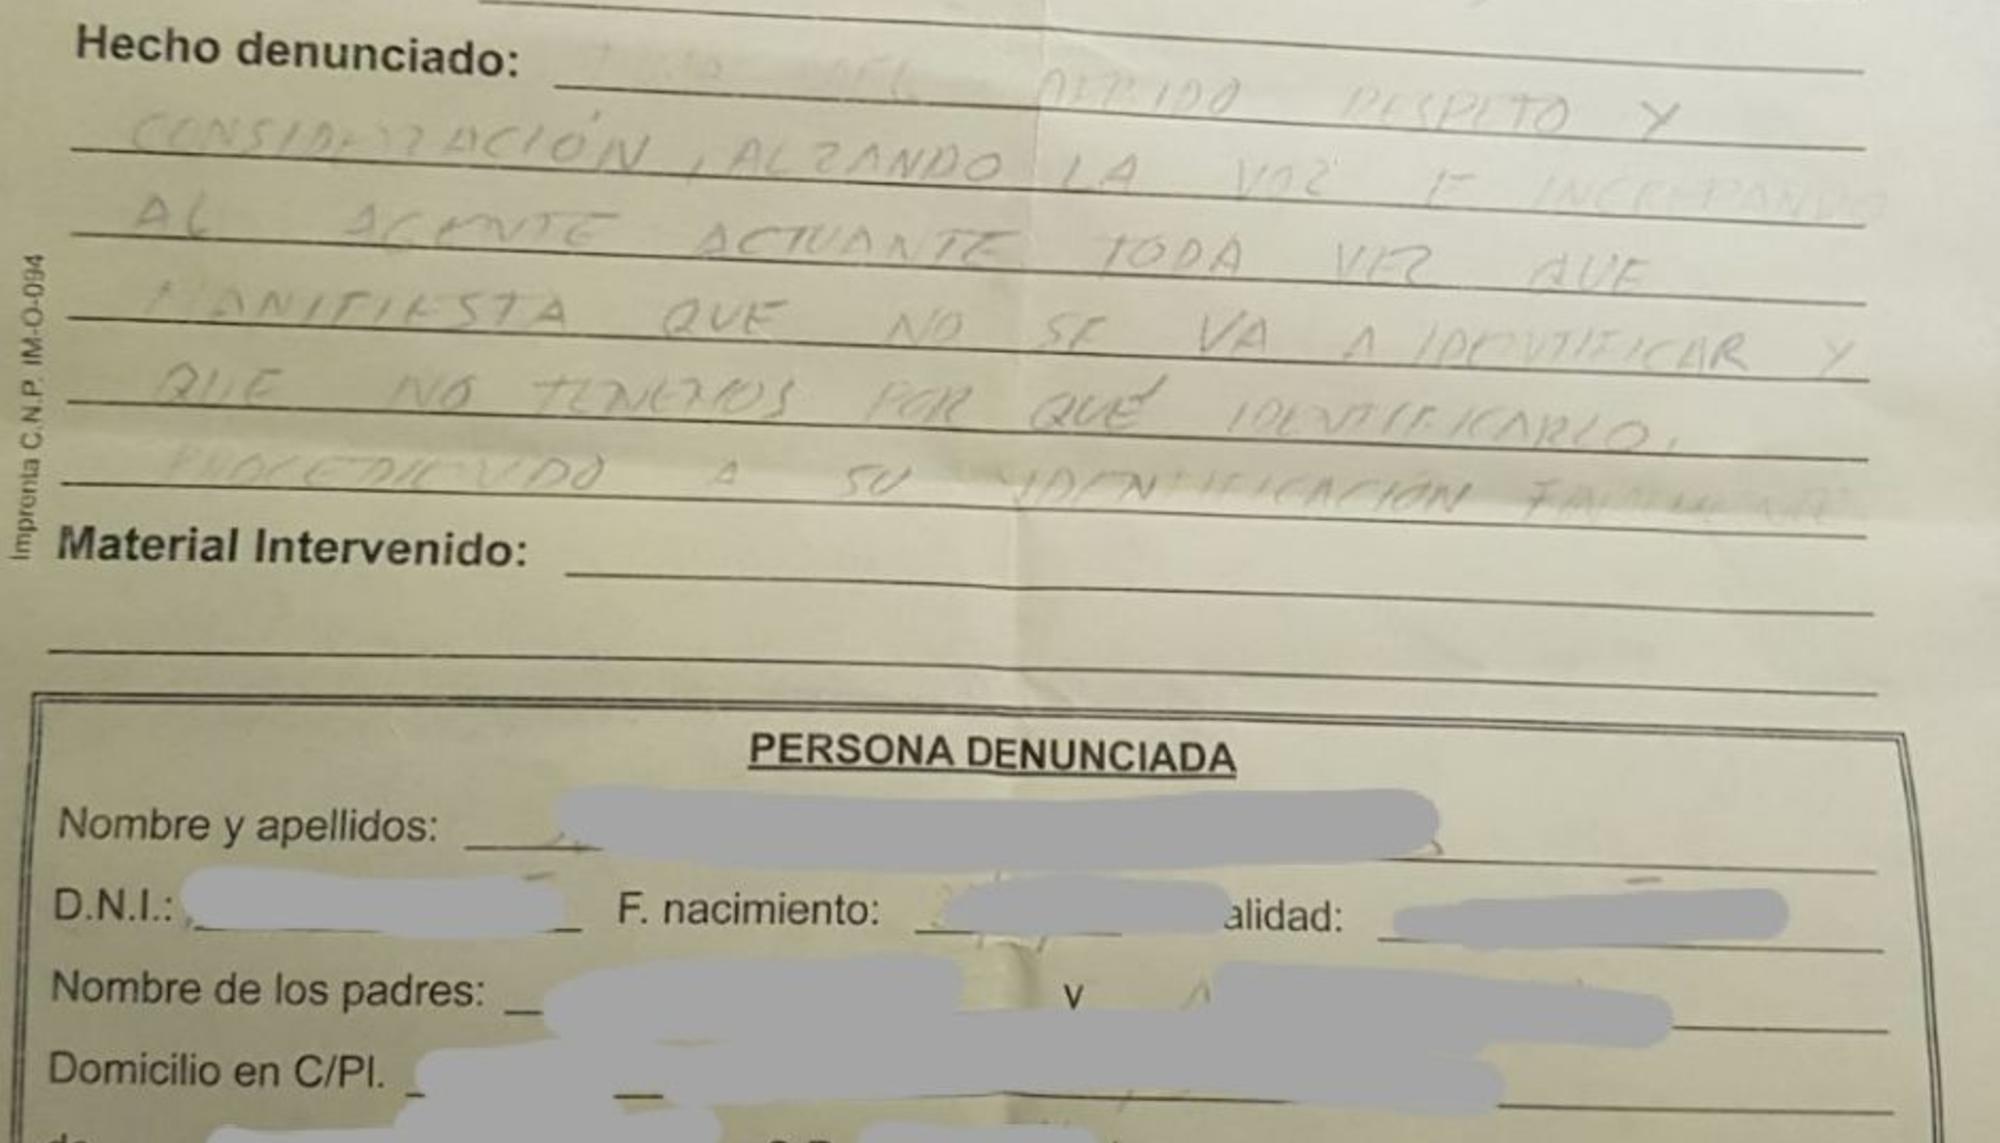 Hecho denunciado: DEL DEBIDO RESPETO Y
CONSIDERACIÓN, ALZANDO LA VOZ E INCREPANDO
AL AGENTE ACTUANTE TODA VEZ QUE
MANIFIESTA QUE NO SE VA A IDENTIFICAR Y
QUE NO TENEMOS POR QUÉ IDENTIFICARLO,
PROCEDIENDO A SU IDENTIFICACIÓN FINALMENTE
Material Intervenido:
Impronta C.N.P. IM-O-094
PERSONA DENUNCIADA
Nombre y apellidos:
D.N.I.: F. nacimiento: alidad:
Nombre de los padres: y
Domicilio en C/Pl.